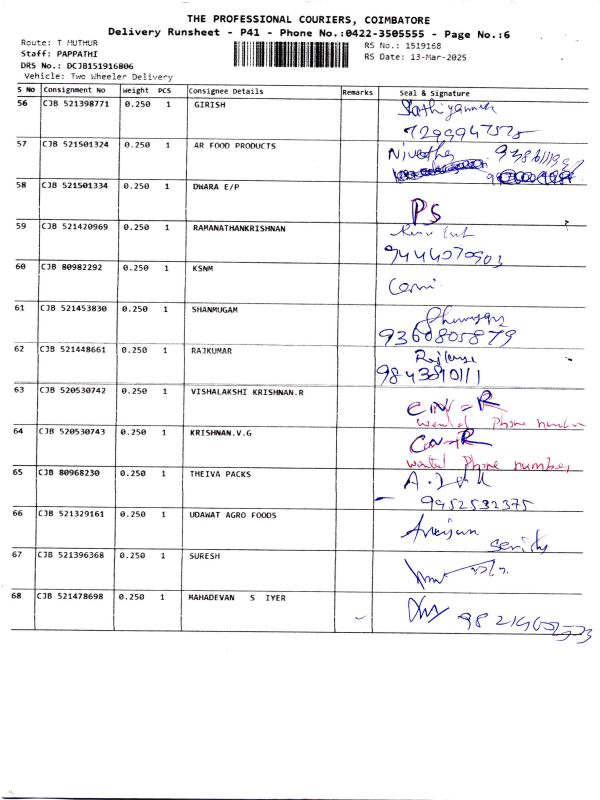 THE PROFESSIONAL COURIERS, COIMBATORE
Delivery Runsheet - P41 - Phone No.:0422-3505555 - Page No.:6
Route: T MUTHUR
RS No.: 1519168
Staff: PAPPATHI
RS Date: 13-Mar-2025
DRS No.: DCJB151916806
Vehicle: Two Wheeler Delivery
S No Consignment No Weight PCS Consignee Details Remarks Seal & Signature
56 CJB 521398771 0.250 1 GIRISH
57 CJB 521501324 0.250 1 AR FOOD PRODUCTS Nivetha
58 CJB 521501334 0.250 1 DWARA E/P PS
59 CJB 521420969 0.250 1 RAMANATHANKRISHNAN
9444070903
60 CJB 80982292 0.250 1 KSNM
61 CJB 521453830 0.250 1 SHANMUGAM
9360805879
62 CJB 521448661 0.250 1 RAJKUMAR
9843810111
63 CJB 520530742 0.250 1 VISHALAKSHI KRISHNAN.R
Phone number
64 CJB 520530743 0.250 1 KRISHNAN.V.G
Phone number
65 CJB 80968230 0.250 1 THEIVA PACKS
9952532375
66 CJB 521329161 0.250 1 UDAWAT AGRO FOODS
67 CJB 521396368 0.250 1 SURESH
68 CJB 521478698 0.250 1 MAHADEVAN S IYER